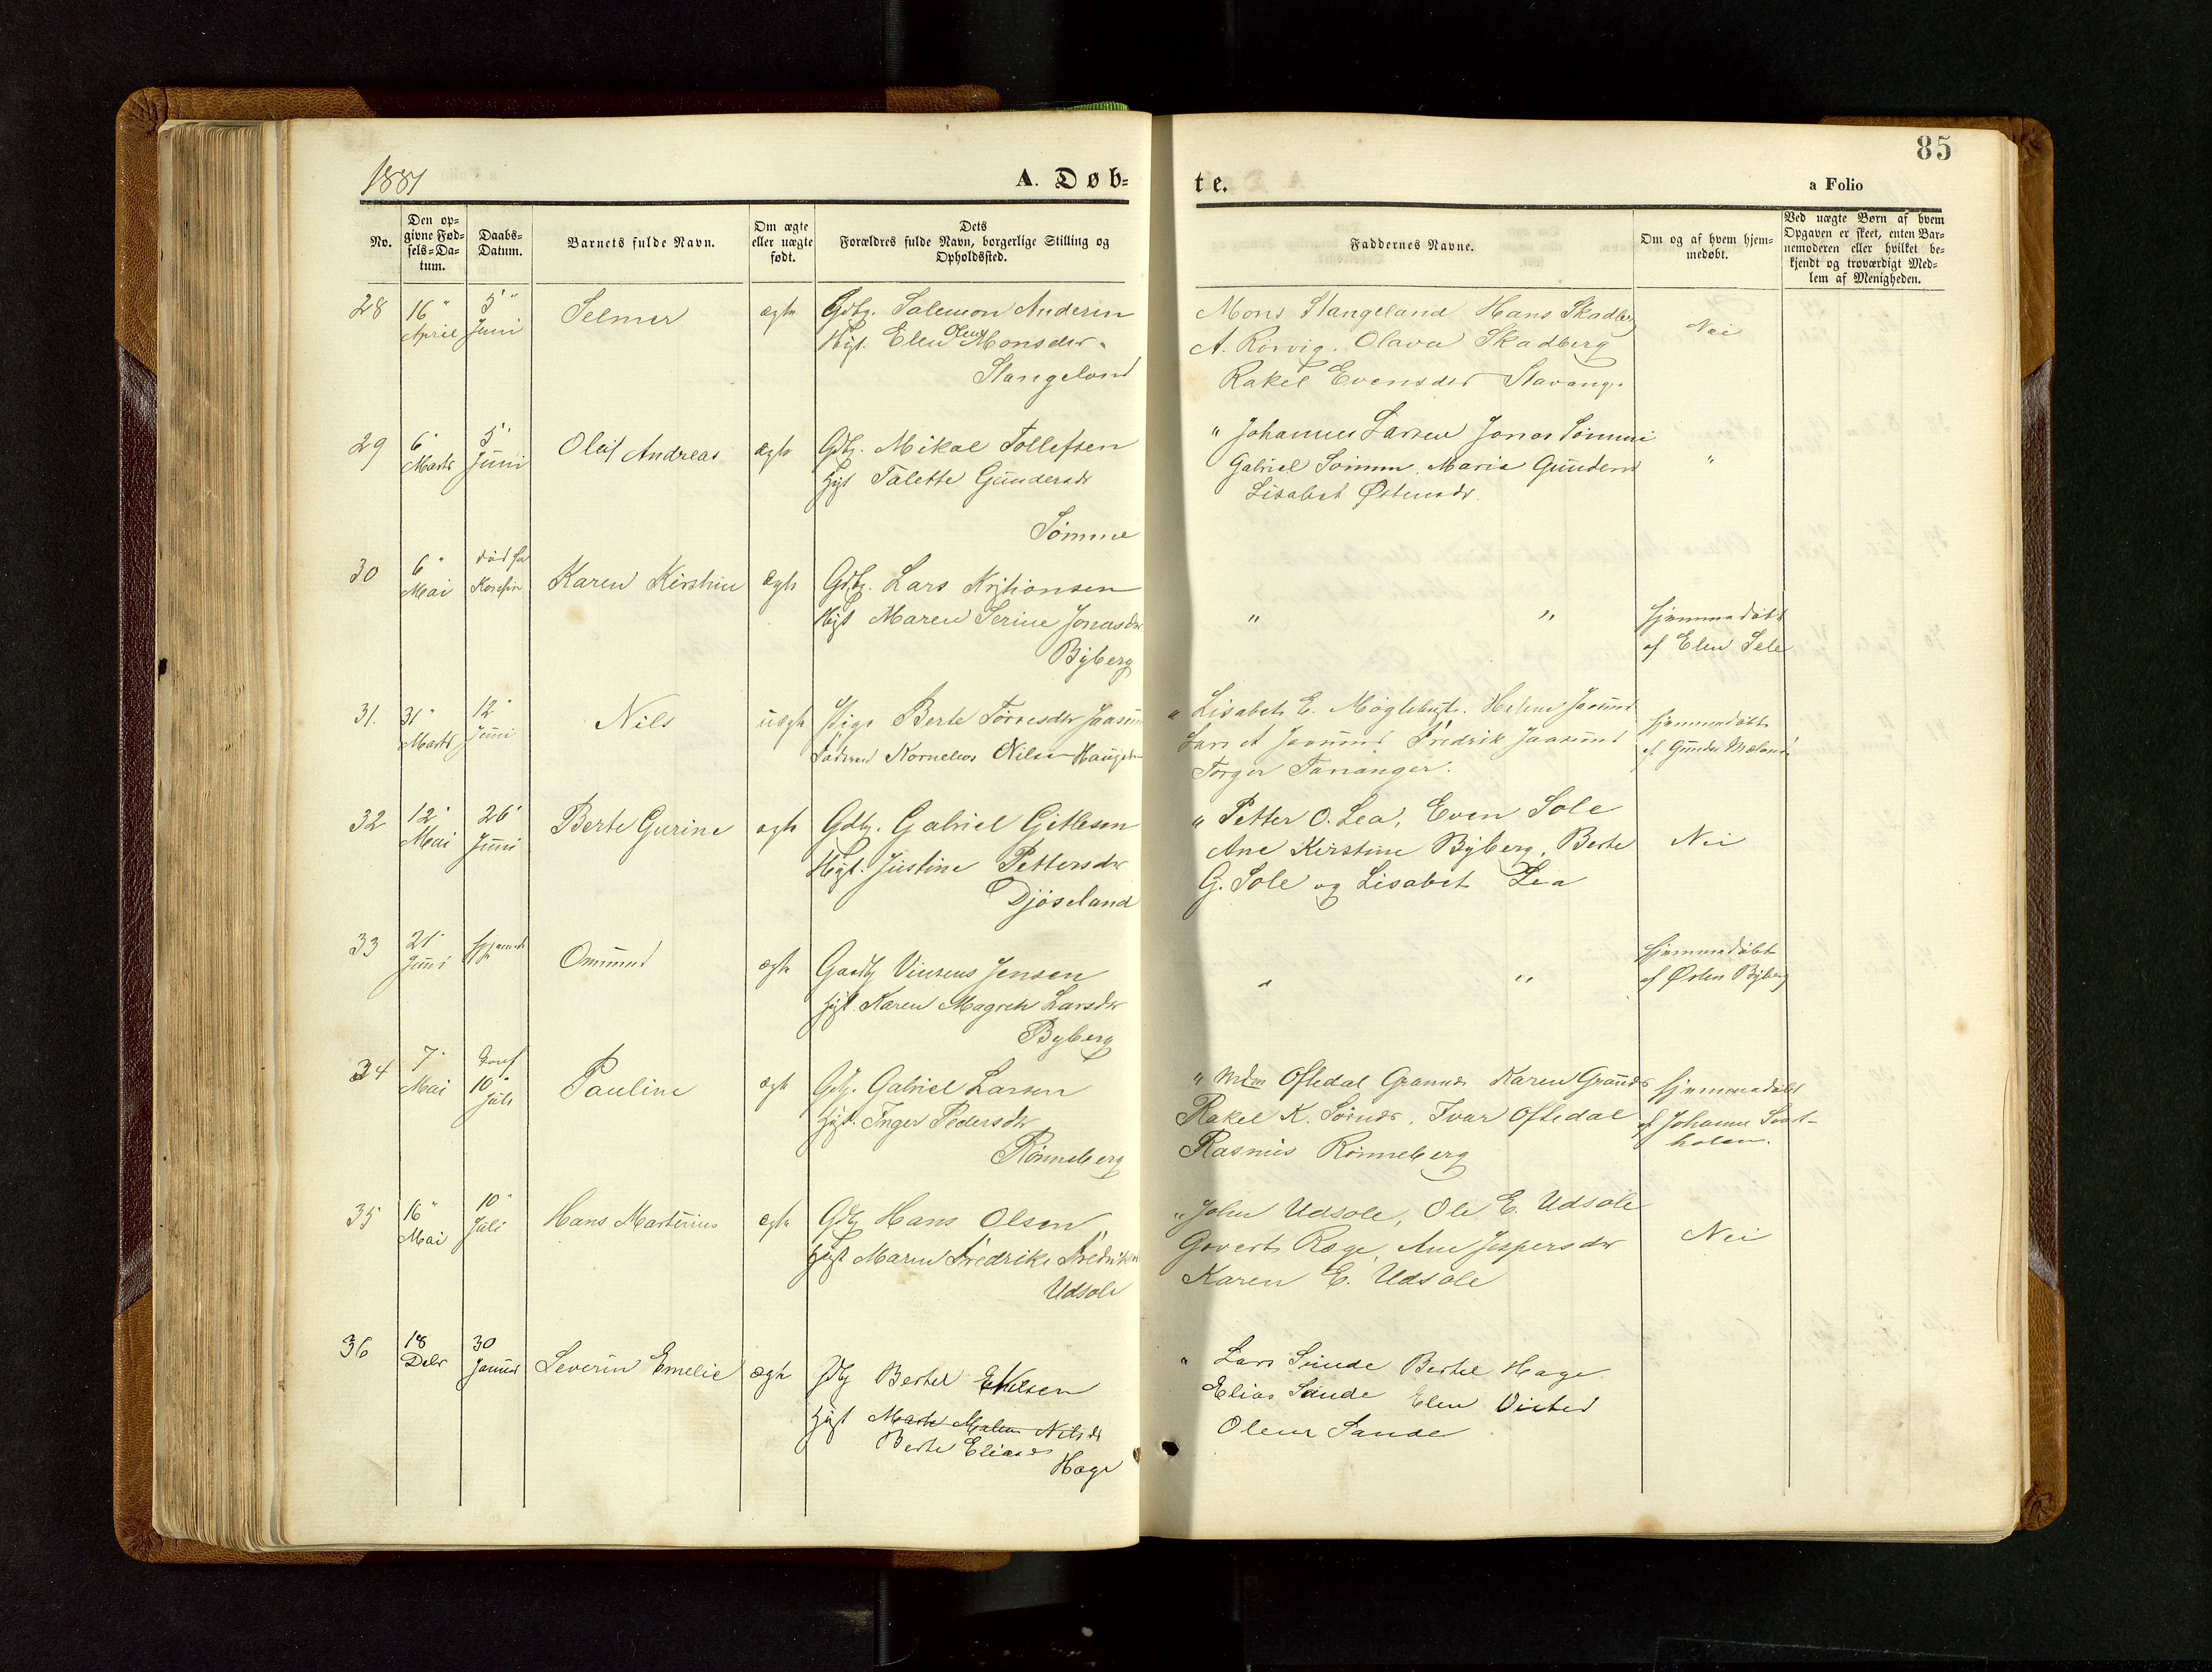 85
1881
A. Døb-
te.
a Folio
No.
Den op-
givne Fød-
sels-Da-
tum.
Daabs-
Datum.
Barnets fulde Navn.
Om ægte
eller uægte
født.
Dets
Forældres fulde Navn, borgerlige Stilling og
Opholdssted.
Faddernes Navne.
Om og af hvem hjem-
medøbt.
Ved uægte Børn af hvem
Opgaven er skeet, enten Bar-
nemoderen eller hvilket be-
kjendt og troværdigt Med-
lem af Menigheden.
28
16"
April
5"
Juni
Selmer
ægte
Gdbg. Salemon
Hgt. Elen Olene Monsdtr.
Stangeland
Mons Stangeland Hans Skadberg
A. Rörvig. Olava Skadberg
Rakel Evensdtr Stavang.
Nei
29
6"
Marts
5"
Juni
Olaf Andreas
ægte
Gdbg. Mikal Tollefsen
Hgt Talette Gundersdr
Sömme
" Johannes Larsen Jonas Sömme
Gabriel Sömme, Maria Gunders
Lisabet Østensdr.
"
30
6"
Mai
död før
Karen Kirstine
ægte
Gdbg. Lars Kristiansen
Hgt Maren Serine Jonasdtr
Byberg
" "
hjemmedöbt
af Elen Sele
31.
31"
Marts
12"
Juni
Nils
uægte
Pige Berte Torresdtr Jaasund
Faderen Kornelius Nilsen Haugen
" Lisabet E. Möglebust. Helene Jaasund
Lars A Jaasund Fredrik Jaasund
Torger Tananger.
hjemmedöbt
af Gunder Meland
32
12"
Mai
26"
Juni
Berte Gurine
ægte
Gdbg. Gabriel Gitlesen
Hgt. Justine Pettersdtr
Djöseland
" Petter O. Lea, Even Sole
Ane Kirstine Byberg, Berte
G. Sole og Lisabet Lea
Nei
33
21"
Juni
Ommund
ægte
Gaardbg Vinsens Jensen
Hgt Karen Magrete Larsdtr
Byberg
" "
hjemmedöbt
af Østen Byberg
34
7"
Mai
10"
Juli
Pauline
ægte
Gdbg. Gabriel Larsen
Hgt. Inger Pedersdtr
Rönneberg
" Oftedal Grannes Karen Grannes
Rakel K. Sörnes, Ivar Oftedal
Rasmus Rönneberg
hjemmedöbt
af Johanne
holm.
35
16"
Mai
10"
Juli
Hans Martinius
ægte
Gdbg Hans Olsen
Hgt Maren Fredrike Fredriksen
Udsole
" John Udsole, Ole E. Udsole
Govert Ræge, Ane Jespersdtr
Karen E. Udsole
Nei
36
18
Debr
30
Januar
Severin Emelie
ægte
Gdbg Bertel
Hgt Marte Malene Nilsdr
Berte Eliasdr
Hage
" Lars Sande Bertel Hage
Elias Sande Elen Visted
Olene Sande